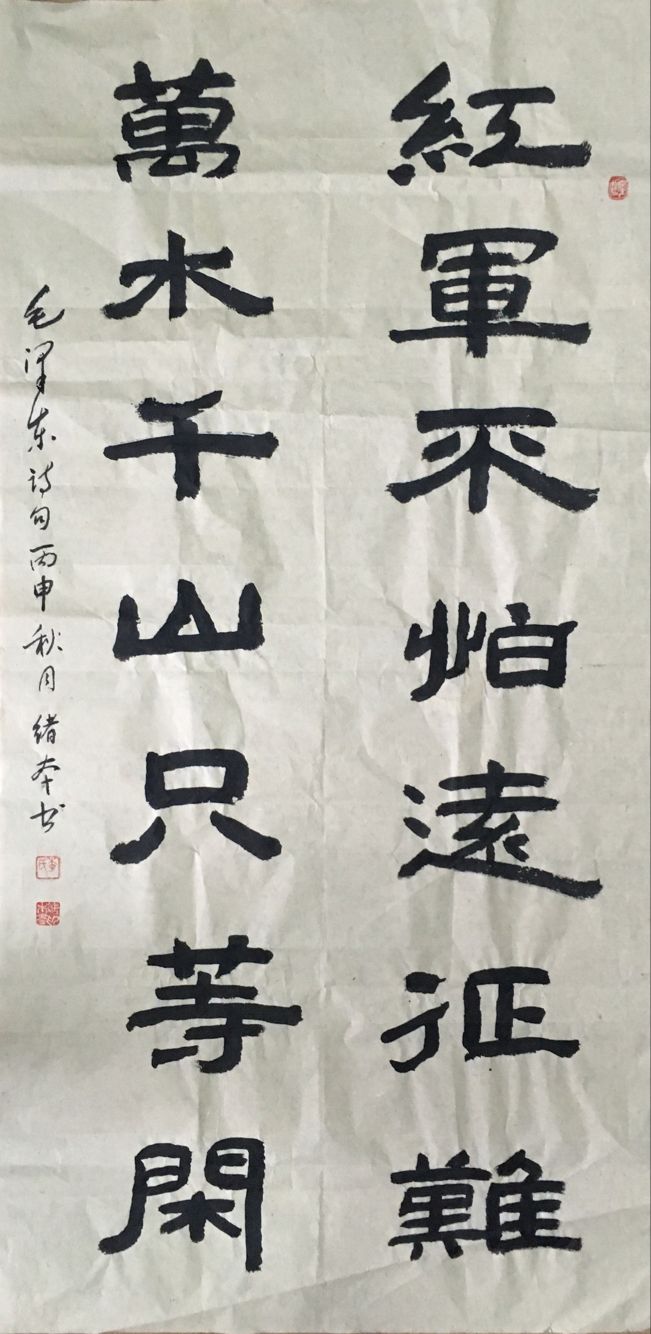 紅軍不怕遠征難
萬水千山只等閑
毛泽东诗句丙申秋月緒本书